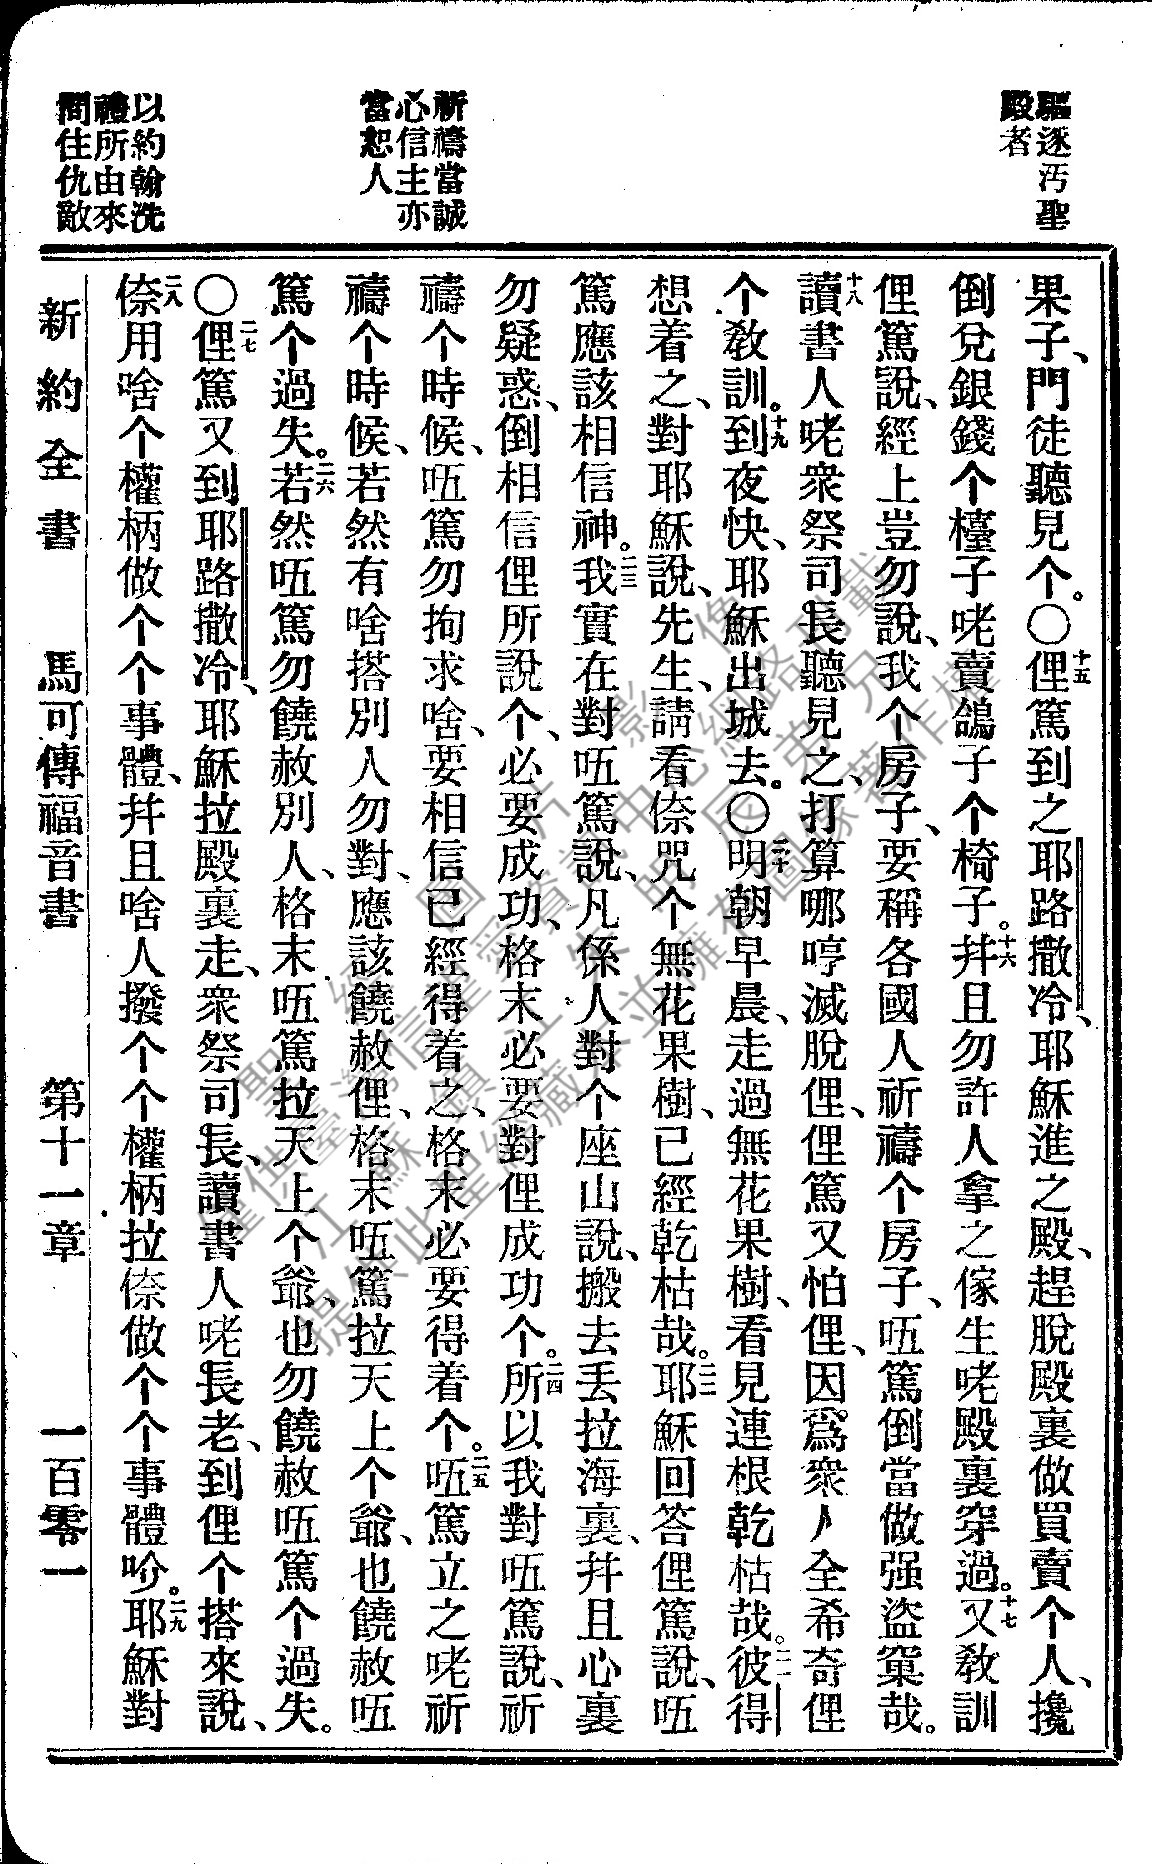 驅逐汚聖
殿者
祈禱當誠
心信主亦
當恕人
以約翰洗
禮所由來
問住仇敵
果子、門徒聽見个。〇十五俚篤到之耶路撒冷、耶穌進之殿、趕脫殿裏做買賣个人、攙
倒兌銀錢个檯子咾賣鴿子个椅子。十六幷且勿許人拿之傢生咾殿裏穿過。十七又敎訓
俚篤說、經上豈勿說、我个房子、要稱各國人祈禱个房子、㕶篤倒當做强盜窠哉。
十八讀書人咾衆祭司長聽見之、打算哪哼滅脫俚、俚篤又怕俚、因爲衆人全希奇俚
个敎訓。十九到夜快、耶穌出城去。〇二十明朝早晨、走過無花果樹、看見連根乾枯哉。二一彼得
想着之、對耶穌說、先生、請看倷咒个無花果樹、已經乾枯哉。二二耶穌回答俚篤說、㕶
篤應該相信神。二三我實在對㕶篤說、凡係人對个座山說、搬去丟拉海裏、幷且心裏
勿疑惑、倒相信俚所說个、必要成功、格末必要對俚成功个。二四所以我對㕶篤說、祈
禱个時候、㕶篤勿拘求啥、要相信已經得着之、格末必要得着个。二五㕶篤立之咾祈
禱个時候、若然有啥搭別人勿對、應該饒赦俚、格末㕶篤拉天上个爺、也饒赦㕶
篤个過失。二六若然㕶篤勿饒赦別人、格末㕶篤拉天上个爺、也勿饒赦㕶篤个過失。
〇二七俚篤又到耶路撒冷、耶穌拉殿裏走、衆祭司長、讀書人咾長老、到俚个搭來說、
二八倷用啥个權柄做个个事體、幷且啥人撥个个權柄拉倷做个个事體吤。二九耶穌對
新約全書　馬可傳福音書　第十一章　一百零一
聖經圖片影像
僅供臺灣信望愛資訊中心網路刊載
江蘇鎮江朱明辰弟兄
提供此聖經藏本並擁有圖像著作權